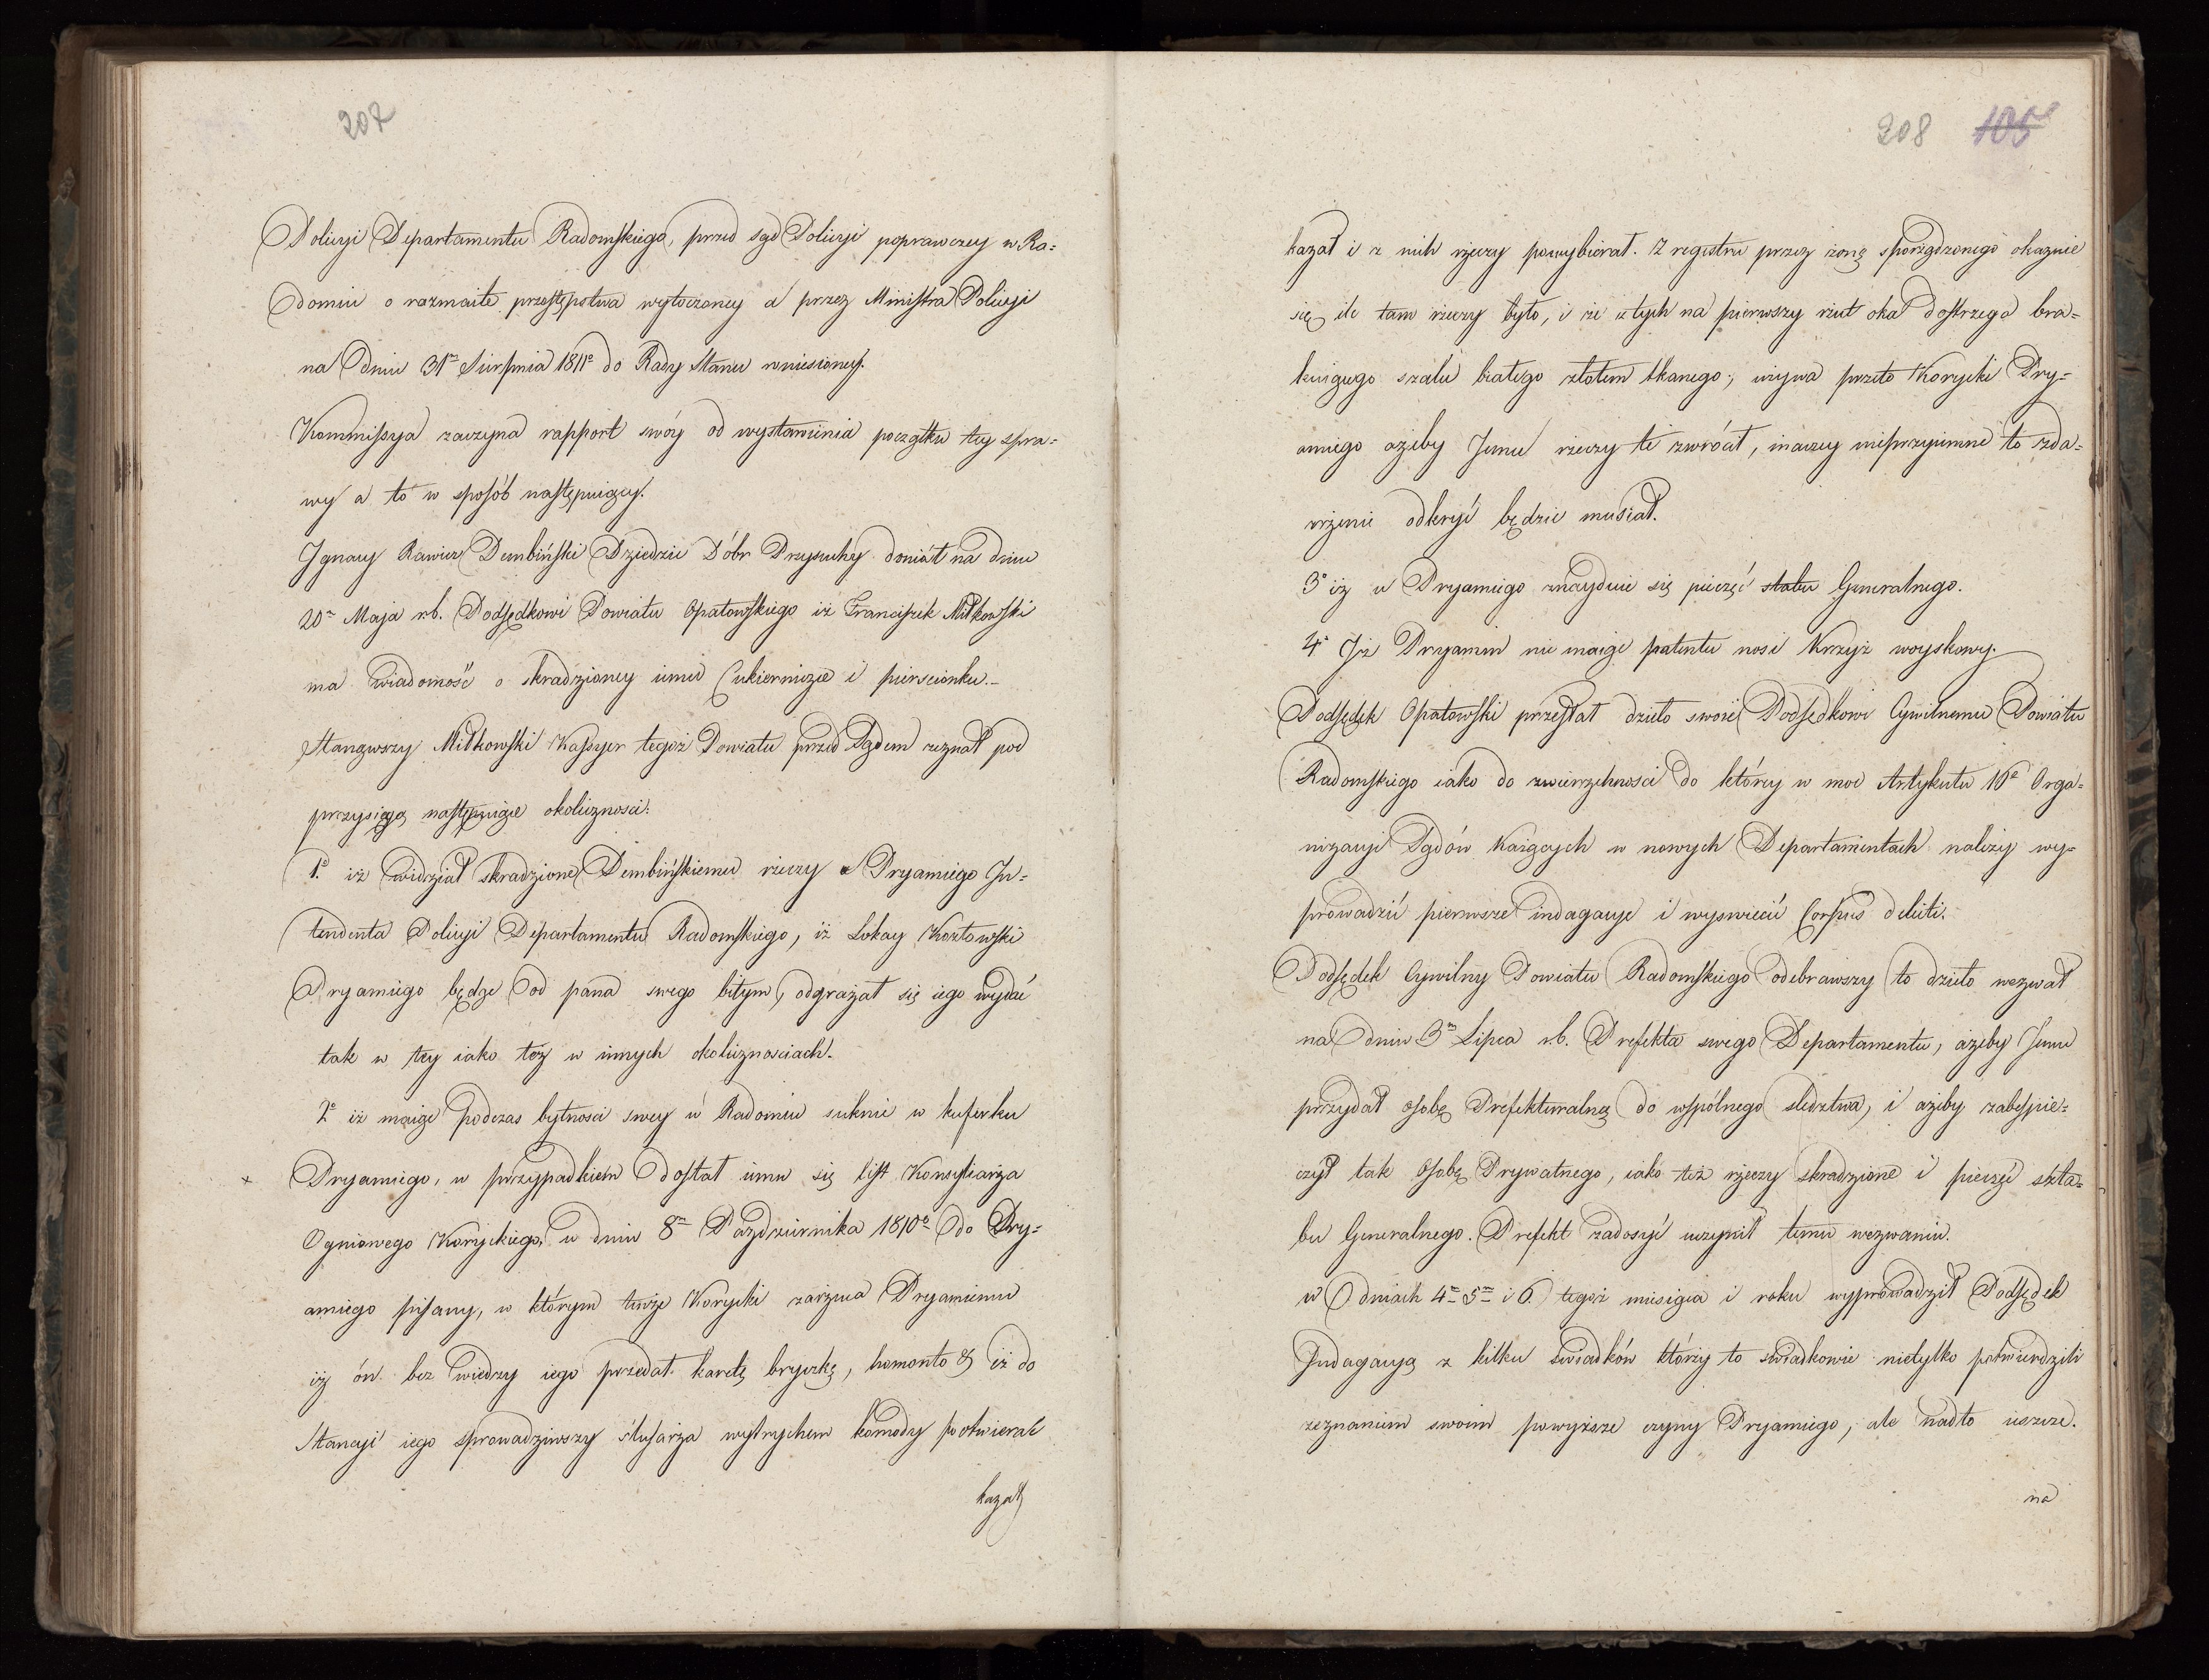 207
Policyi Departamentu Radomskiego, przed sąd Policyi poprawczey w Ra=
domiu o rozmaite przestępstwa wytoczoney a przez Ministra Policyi
na dniu 31m Sierpnia 1811o do Rady Stanu wniesioney.
Kommissya zaczyna rapport swóy od wystawienia początku tey spra=
wy a to w sposób następuiący.
Ignacy Rawicz Dembiński Dziedzic Dóbr Przysuchy doniósł na dniu
20m Maja r.b. Podsędkowi Powiatu Opatowskiego iż Franciszek Miłkowski
ma wiadomość o skradzioney iemu Cukiernicze i pierscionku.-
Stanąwszy Miłkowski Kassyer tegoż Powiatu przed Sądem zeznał pod
przysięgą następuiące okoliczności:
1o iż widział skradzione Dembińskiemu rzeczy u Pryamiego In=
tendenta Policyi Departamentu Radomskiego, iż Lokay Kozłowski
Pryamiego będąc od pana swego bitym, odgrażał się iego wydać
tak w tey iako też w innych okolicznosciach.
2o iż maiąc podczas bytnosci swey w Radomiu suknie w kuferku
x Pryamiego, w przypadkiem dostał iemu się list Konsyliarza
Ogniowego Koryckiego, w dniu 8m Pazdziernika 1810o do Pry=
amiego pisany, w którym tenże Korycki zarzuca Pryamiemu
iż ón bez wiedzy iego przedał karetę bryczkę, homonto & iż do
Stancyi iego sprowadziwszy slusarza wytrychem komody pootwierać
kazał
208 105
kazał i z nich rzeczy powybierał. Z regestru przez żonę sporządzonego okaznie
się ile tam rzeczy było, i że z tych na pierwszy rzut oka dostrzega bra=
kuiącego szalu białego złotem tkanego; wzywa przeto Korycki Pry=
amiego ażeby Jemu rzeczy te zwrócił, inaczey nieprzyiemne to zda=
rzenie odkryć będzie musiał.
3o iż u Pryamiego znayduie się pieczęć stabu Generalnego.
4o Iż Pryamin nie maiąc patentu nosi Krzyż woyskowy.
Podsędek Opatowski przesłał dzieło swoie Podsędkowi Cywilnemu Powiatu
Radomskiego iako do zwierzchnosci do którey w moc Artykułu 16o Orga=
nizacyi Sądów Karzących w nowych Departamentach należy wy=
prowadzić pierwsze indagacye i wyswiecić Corpus delicti.
Podsędek Cywilny Powiatu Radomskiego odebrawszy to dzieło wezwał
na dniu 3m Lipca r.b. Prefekta swego Departamentu, ażeby Jemu
przydał osobę Prefekturalną do wspólnego sledztwa, i ażeby zabespie=
czył tak Osobę Prywatnego, iako też rzeczy skradzione i pieczęć szta=
bu Generalnego. Prefekt zadosyć uczynił temu wezwaniu.
w dniach 4m 5m i 6. tegoż miesiąca i roku wyprowadził Podsędek
Indagacyą z kilku swiadków którzy to swiadkowie nietylko potwierdzili
zeznaniem swoim powyższe czyny Pryamiego, ale nadto ieszcze.
na